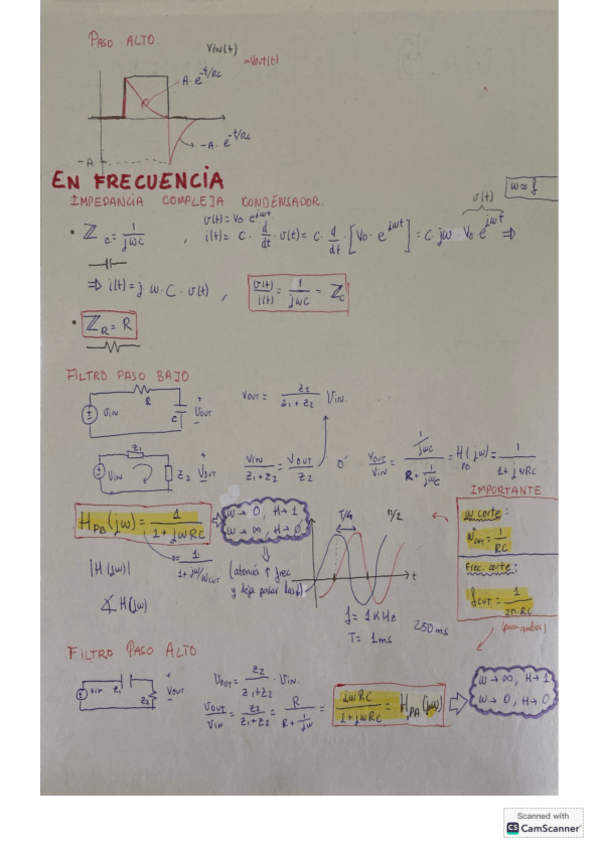 PASO ALTO.
Vin(t)
-Vout(t)
A·e^-t/RC
-A·e^-t/RC
-A
EN FRECUENCIA
IMPEDANCIA COMPLEJA CONDENSADOR.
v(t)
• Z_C = 1/jωC , v(t) = V₀·e^jωt
i(t) = C·d/dt·v(t) = C·d/dt·[V₀·e^jωt] = C·jω·V₀e^jωt ⇒
⇒ i(t) = j·ω·C·v(t) , v(t)/i(t) = 1/jωC = Z_C
• Z_R = R
FILTRO PASO BAJO
R
Vin
C
+ Vout -
Vout = Z2/(Z1+Z2) Vin.
Z1
Vin
Z2
+ Vout -
Vin/(Z1+Z2) = Vout/Z2 ó Vout/Vin = (1/jωC)/(R + 1/jωC) = H_PB(jω) = 1/(1+jωRC)
IMPORTANTE
H_PB(jω) = 1/(1+jωRC)
ω→0, H→1
ω→∞, H→0
= 1/(1+jω/ω_CUT)
|H(jω)|
∡H(jω)
(atenúa ↑ frec
T/4
π/2
t
f = 1KHz
T = 1ms
250ms
ω corte:
ω_CUT = 1/RC
Frec. corte:
f_CUT = 1/2πRC
(para ambos)
FILTRO PASO ALTO
Vin
Z1
Z2
+ Vout -
Vout = Z2/(Z1+Z2)·Vin.
Vout/Vin = Z2/(Z1+Z2) = R/(R+1/jω) = jωRC/(1+jωRC) = H_PA(jω)
ω→∞, H→1
ω→0, H→0
Scanned with
CS CamScanner